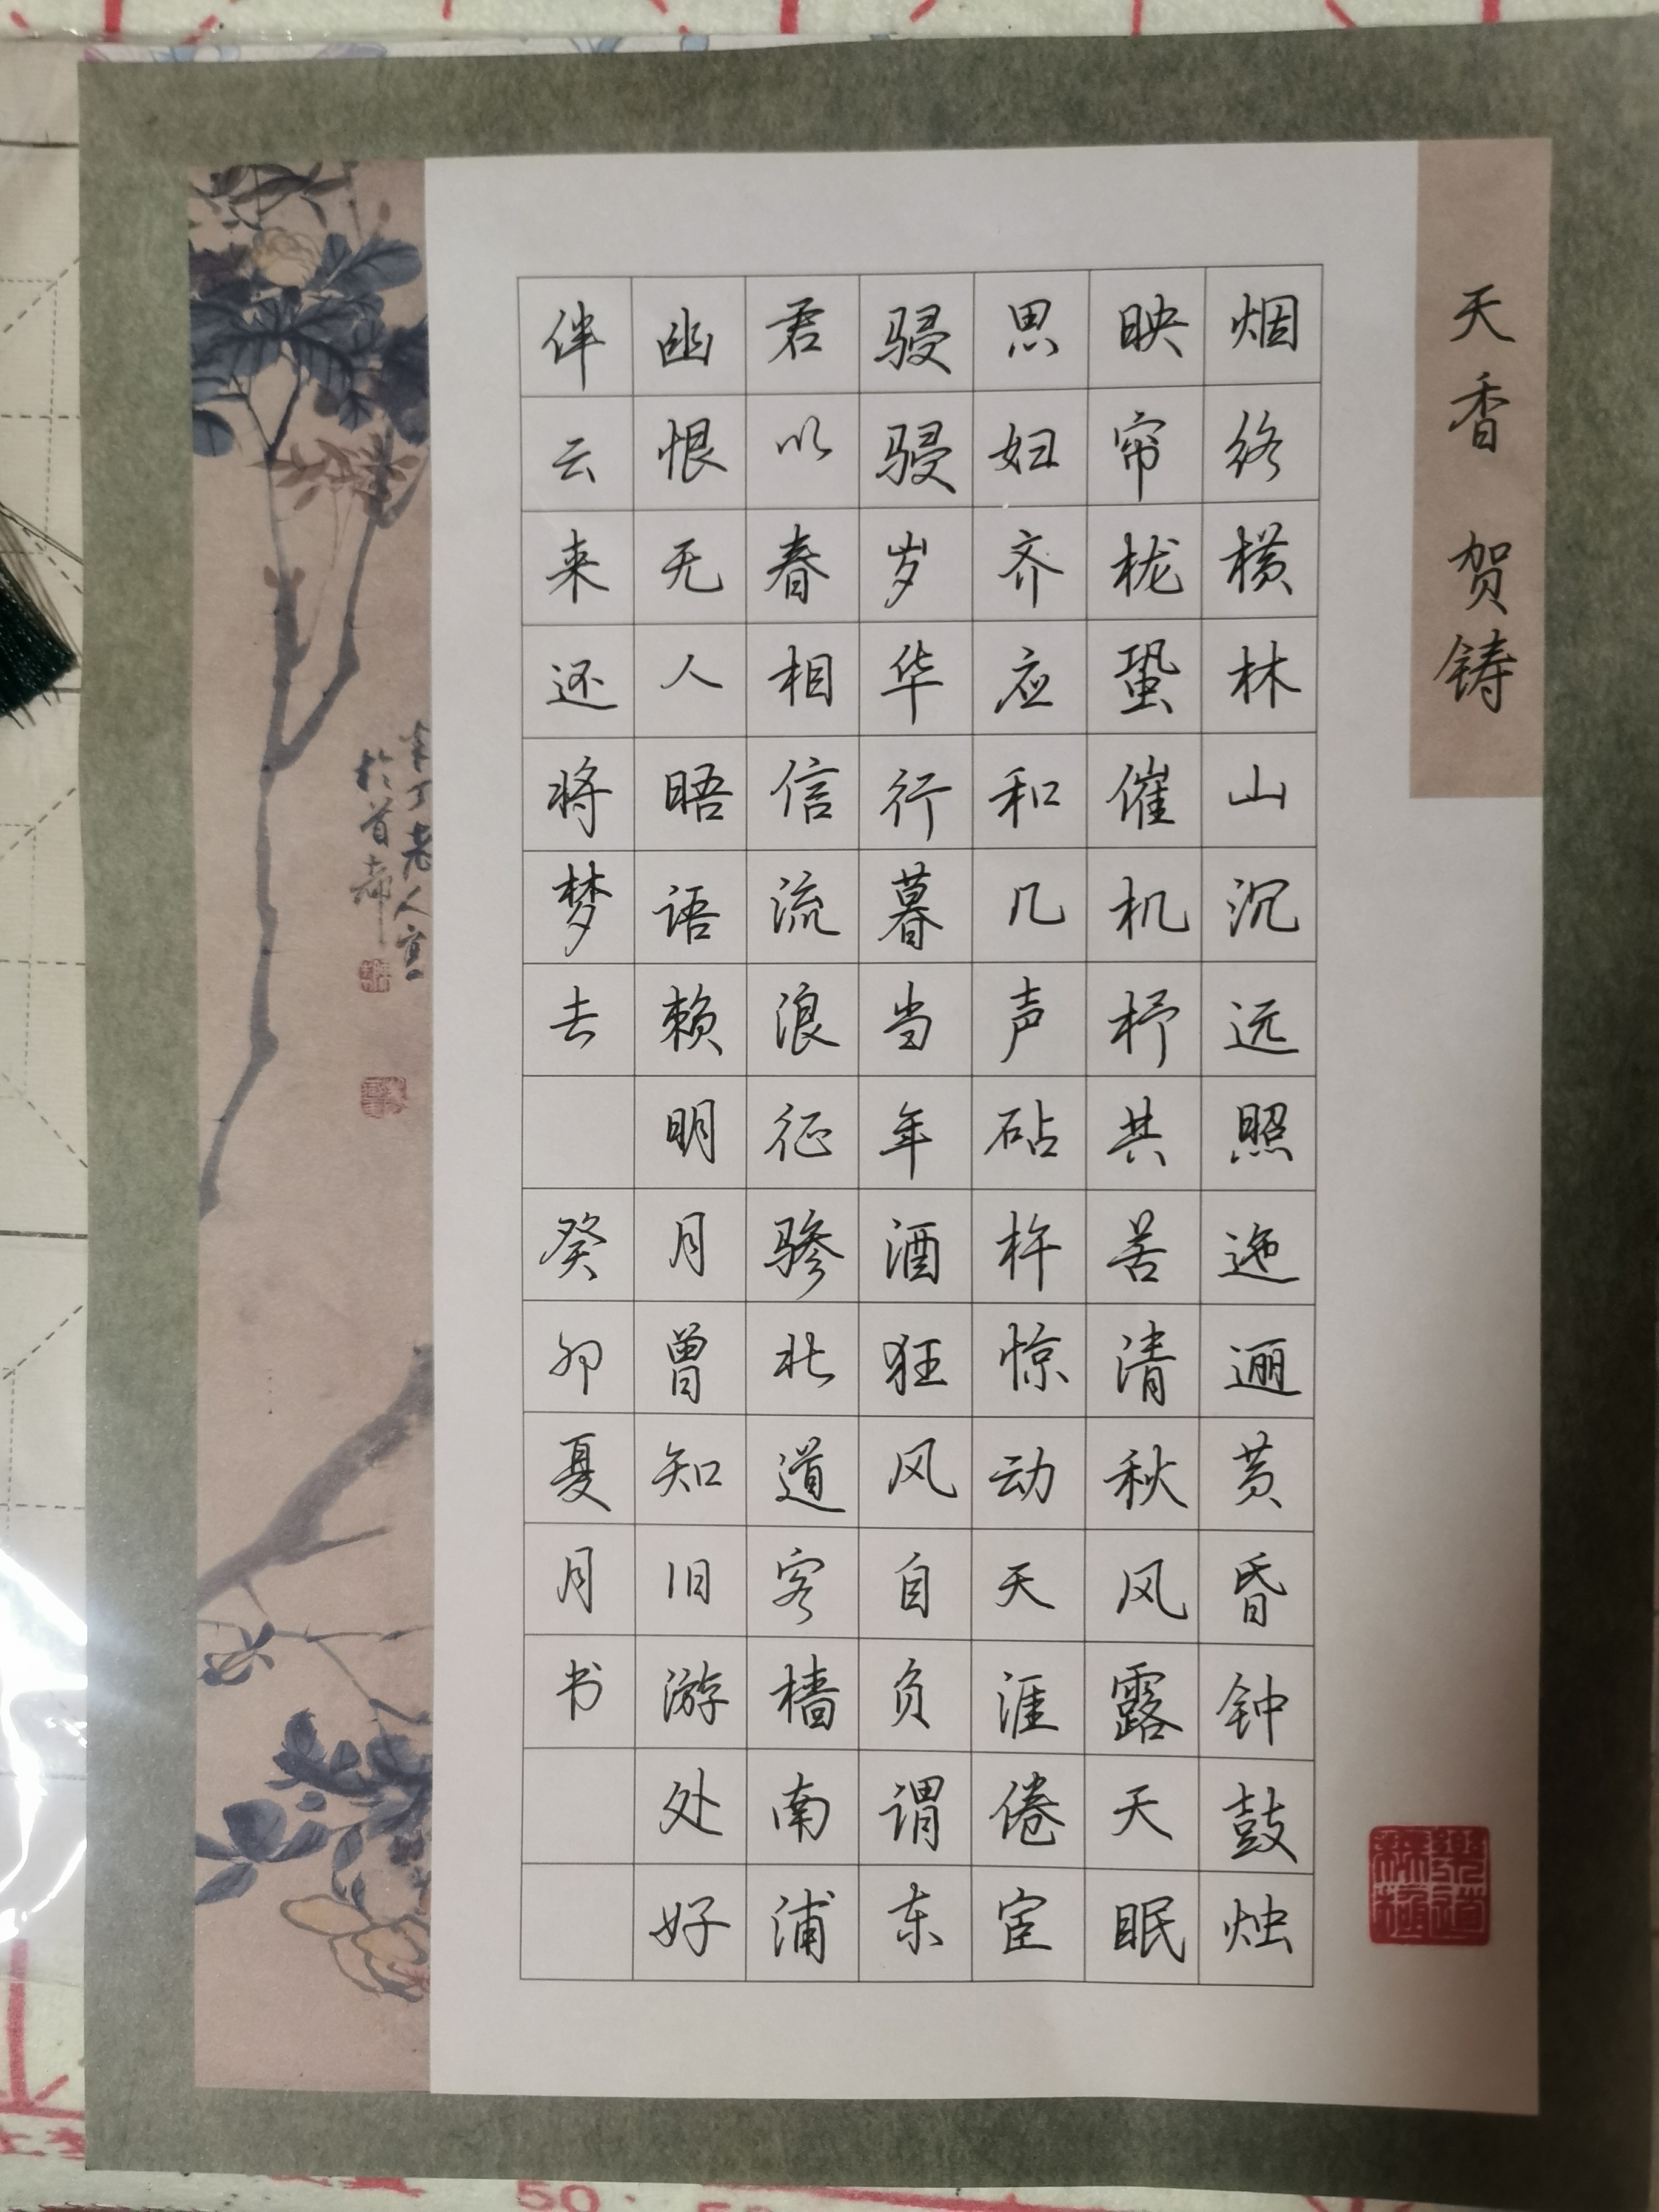 天香 贺铸
烟络横林山沉远照迤逦黄昏钟鼓烛
映帘栊蛩催机杼共苦清秋风露天眠
思妇齐应和几声砧杵惊动天涯倦宦
骎骎岁华行暮当年酒狂风自负谓东
君以春相信流浪征骖北道客樯南浦
幽恨无人晤语赖明月曾知旧游处好
伴云来还将梦去 癸卯夏月书
老人
於首都
50